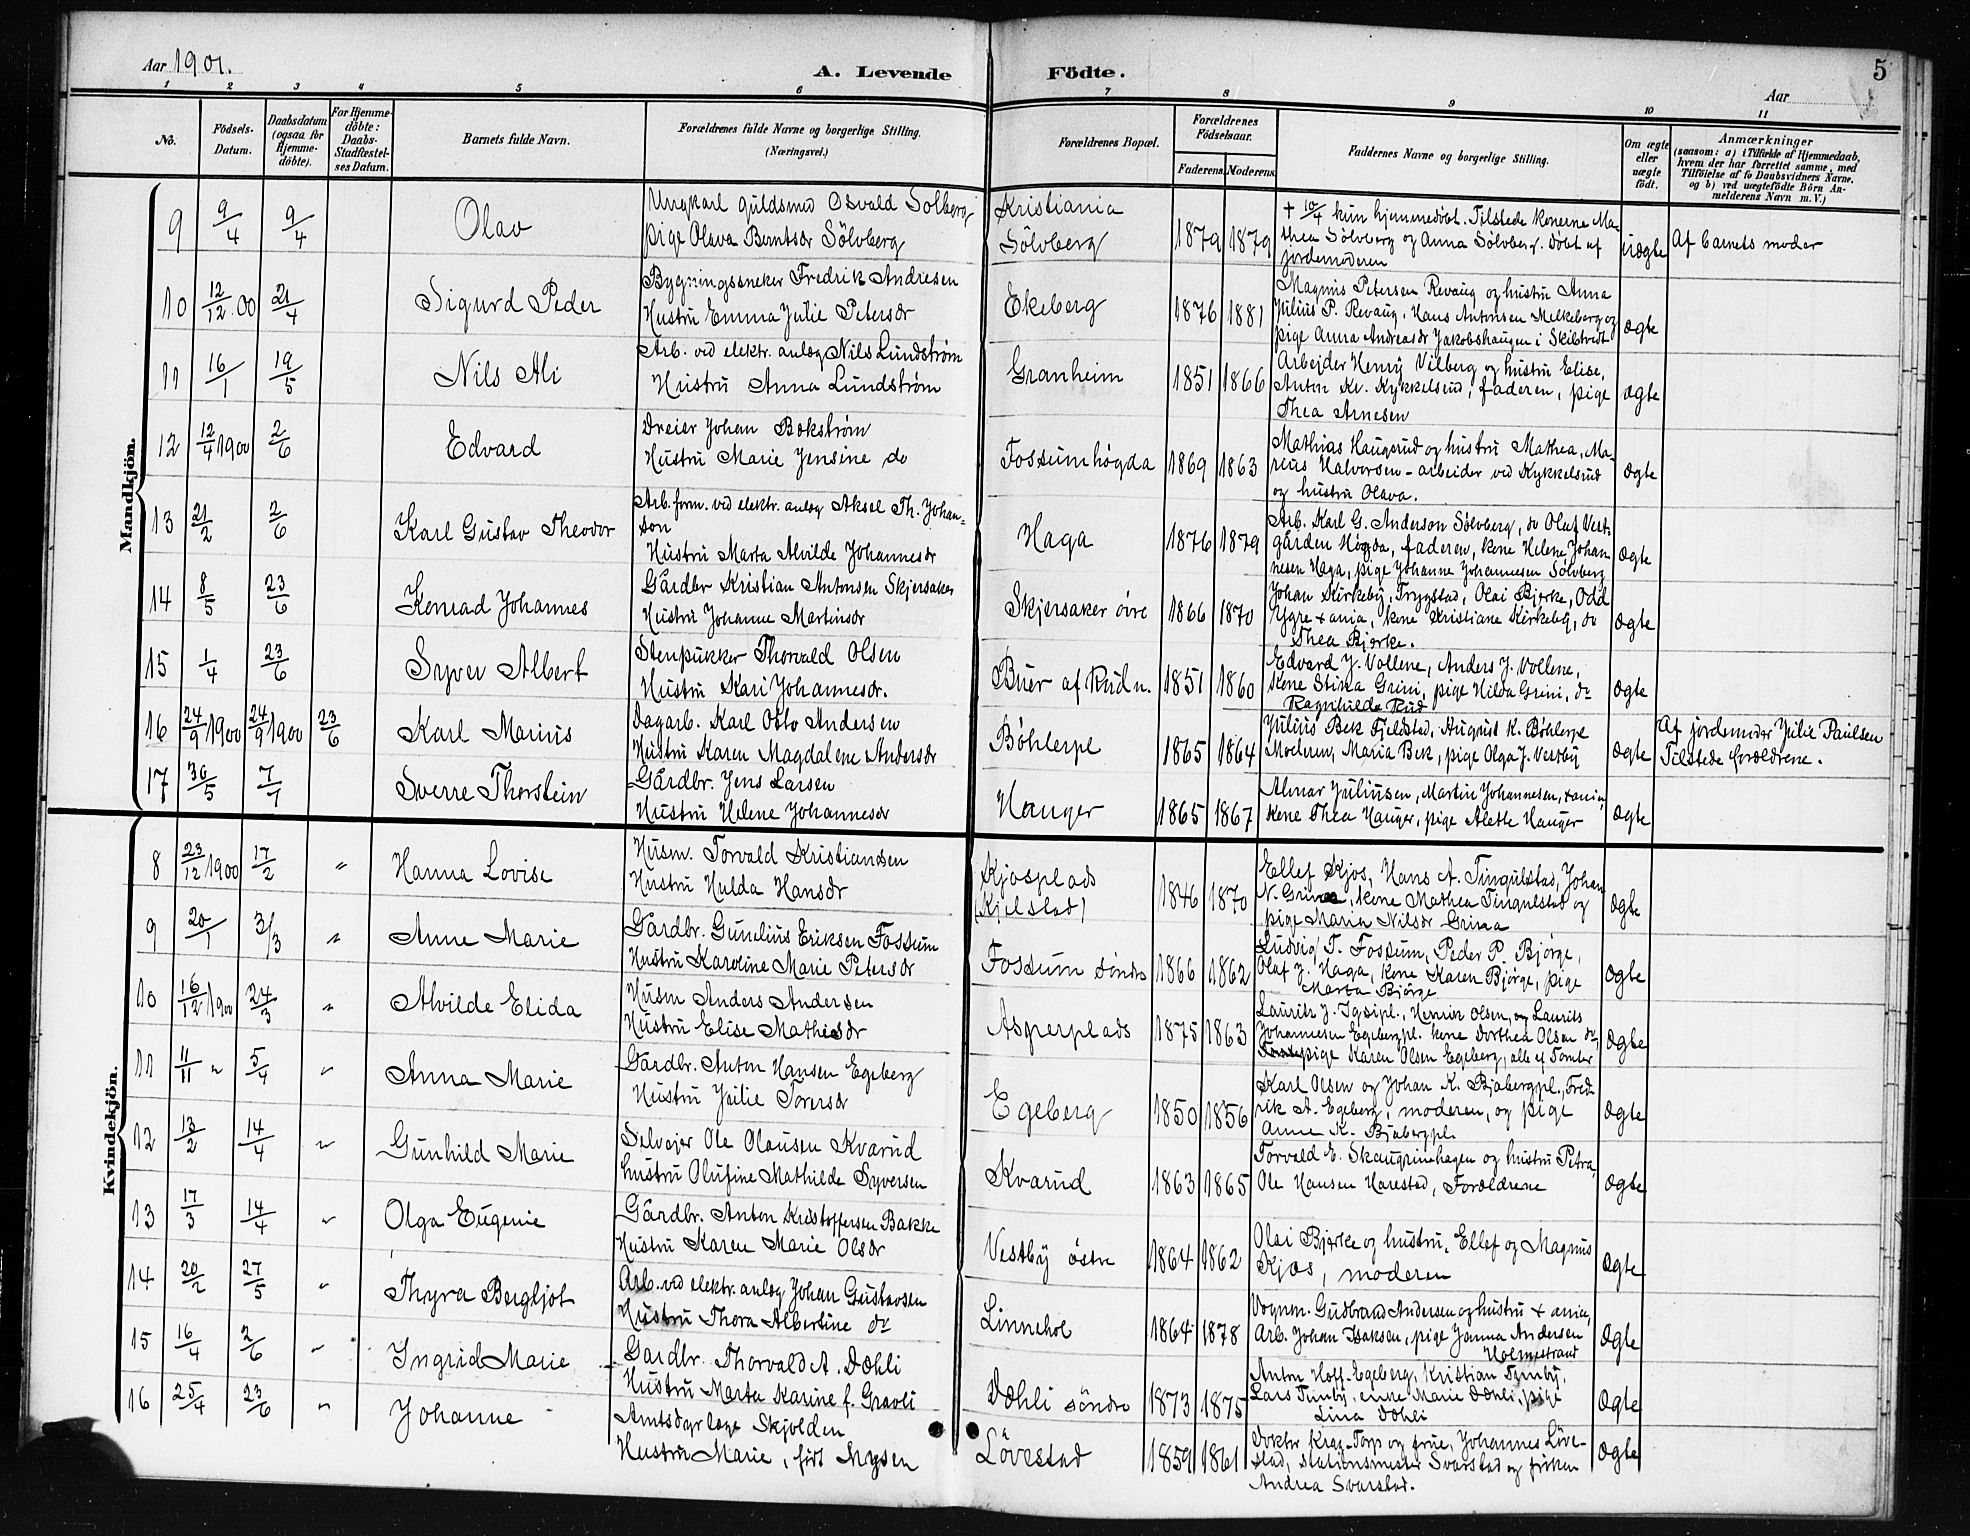 Aar 1901.
A. Levende Födte.
5
Aar
1 2 3 4 5 6 7 8 9 10 11
No.
Födsels-Datum.
Daabsdatum (ogsaa for Hjemme-döbte).
For Hjemme-döbte: Daabs-Stadfæstel-ses Datum.
Barnets fulde Navn.
Forældrenes fulde Navne og borgerlige Stilling. (Næringsvei.)
Forældrenes Bopæl.
Forældrenes Födselsaar.
Faderens. Moderens.
Faddernes Navne og borgerlige Stilling.
Om ægte eller uægte født.
Anmærkninger
(saasom: a) i Tilfælde af Hjemmedaab, hvem der har forrettet samme, med Tilföielse af to Daabsvidners Navne, og b) ved uægtefödte Börn Anmelderens Navn m. V.)
Mandkjön.
9 9/4 9/4 Olav
Ungkarl guldsmed Osvald Solberg
pige Olava Berntsdr Sölvberg
Kristiania
Sölvberg
1879 1879
+ 10/4 kun hjemmedöbt. Tilstede konerne Ma-
thea Sölvberg og Anna Sölvberg. Döbt af
jordemoderen
Uægte
Af barnets moder
10 12/12.00 21/4 Sigurd Peder
Bygningssneker Fredrik Andresen
Hustru Emma Julie Petersdr
Ekeberg
1876 1881
Magnus Petersen Revaug og hustru Anna
Julius P. Revaug, Hans Antonsen Melkeberg og
pige Anna Andreasdr Jakobshaugen i Skibtvedt
Ægte
11 16/1 19/5 Nils Ali
Arb. ved elektr. anlæg Nils Lundström
Hustru Anna Lundström
Granheim
1851 1866
Arbejder Henry Vilberg og hustru Elise,
Anton Kr. Kykkelsrud, faderen, pige
Thea Arnesen
Ægte
12 12/4 1900 2/6 Edvard
Dreier Johan Bokström
Hustru Marie Jensine do
Fossumhögda
1869 1863
Mathias Haugsrud og hustru Mathea, Ma-
rius Halvorsen - arbeider ved Kykkelsrud
og hustru Olava.
Ægte
13 21/2 2/6 Karl Gustav Theodor
Arb.form. ved elektr. anlæg Aksel Th. Johan-
son
Hustru Marta Alvilde Johannesdr
Haga
1876 1879
Arb. Karl G. Anderson Sölvberg, do Olaf Vest-
gården Högda, faderen, kone Helene Johan-
nesen Haga, pige Johanne Johannesen Sölvberg
Ægte
14 8/5 23/6 Konrad Johannes
Gårdbr Kristian Antonsen Skjersaker
Hustru Johanne Martinsdr
Skjersaker övre
1866 1870
Johan Kirkeby, Trygstad, Olai Bjerke, Odd
kone Kristiane Kirkeby, do
Thea Bjerke.
Ægte
15 1/4 23/6 Syver Albert
Stenpukker Thorvald Olsen
Hustru Kari Johannesdr.
Buer af Rud n.
1851 1860
Edvard J. Vollene, Anders J. Vollene,
kone Stina Grini, pige Hilda Grini, do
Ragnhilda Rud
Ægte
16 24/9 1900 24/9 1900 23/6 Karl Marius
Dagarb. Karl Otto Andersen
Hustru Karen Magdalene Andersdr
Böhlerpl
1865 1864
Julius Bek Fjeldstad, August K. Böhlerpl
Moderen, Maria Bek, pige Olga J. Vestby
Ægte
Af jordemoder Julie Paulsen
Tilstede forældrene.
17 30/5 7/7 Sverre Thorstein
Gårdbr. Jens Larsen
Hustru Helene Johannesdr
Hauger
1865 1867
Almar Juliusen, Martin Johannesen,
kone Thea Hauger, pige Alette Hauger
Ægte
Kvindekjön.
8 23/12 1900 17/2 " Hanna Lovise
Husm. Torvald Kristiansen
Hustru Hulda Hansdr
Kjosplads
(Kjelstad)
1846 1870
Ellef Kjos, Hans A. Tingulstad, Johan
N. Grina, kone Mathea Tingulstad og
pige Maria Nilsdr Grina
Ægte
9 20/1 3/3 " Anne Marie
Gårdbr. Gunelius Eriksen Fossum
Hustru Karoline Marie Petersdr
Fossum söndre
1866 1862
Ludvig T. Fossum, Peder P. Bjørge,
Olaf J. Haga, kone Karen Bjørge, pige
Marta Bjørge
Ægte
10 16/12 1900 24/3 " Alvilde Elida
Husm Anders Andersen
Hustru Elise Mathisdr
Asperplads
1875 1863
Laurits J. Henrik Olsen, og Laurits
Johannesen Egebergpl. kone Dorthea Olsen do,
pige Karen Olsen Egeberg, alle af Tomter
Ægte
11 11/11 " 5/4 " Anna Marie
Gårdbr. Anton Hansen Egeberg
Hustru Julie Toversdr
Egeberg
1850 1856
Karl Olsen og Johan K. Bjabergpl., Fred-
rik A. Egeberg, moderen, og pige
Anne K. Bjabergpl.
Ægte
12 13/2 14/4 " Gunhild Marie
Selvejer Ole Olausen Kvarud
hustru Olufine Mathilde Syversen
Kvarud
1863 1865
Torvald E. Skaugrinnhagen og hustru Petra,
Ole Hansen Harestad, Forældrene
Ægte
13 17/3 14/4 " Olga Eugenie
Gårdbr. Anton Kristoffersen Bakke
Hustru Karen Marie Olsdr
Vestby östre
1864 1862
Olai Bjerke og hustru, Ellef og Magnus
Kjos, moderen
Ægte
14 20/2 27/5 " Thyra Bergljot
Arb. ved elektr. anlæg Johan Gustavsen
Hustru Thora Albertine do
Linnehol
1864 1878
Vognm. Gudbrand Andersen og hustru
Arb. Johan Isaksen, pige Janna Andersen
Holmestrand
Ægte
15 16/4 2/6 " Ingrid Marie
Gårdbr. Thorvald A. Dæhli
Hustru Marta Karine f. Gravli
Dæhli söndre
1873 1875
Anton Hoff-Egeberg, Kristian Tomby,
Lars Tomby, enke Marie Dæhli, pige
Lina Dæhli
Ægte
16 25/4 23/6 " Johanne
Amtsdyrlæge Skjolden
Hustru Marie, født Mysen
Lövestad
1859 1861
Doktor Krag-Torp og frue, Johannes Löve-
stad, stationsmester Svarstad og frøken
Andrea Svarstad.
Ægte